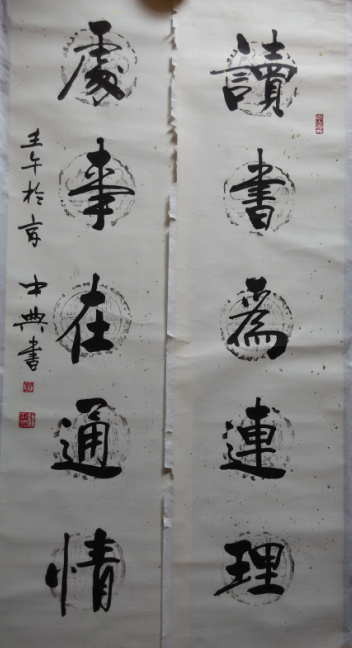 讀書為連理
處事在通情
壬午於
中典書